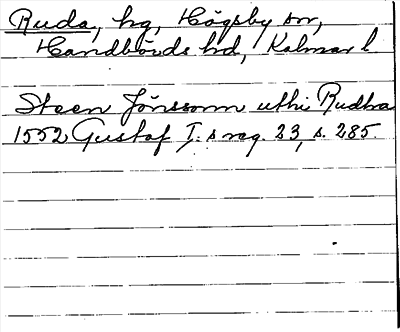 Ruda, hg, Högsby sn,
Handbörds hd, Kalmar l
Steen Jönssonn uthi Rudha
1552 Gustaf I. s reg. 23, s. 285.